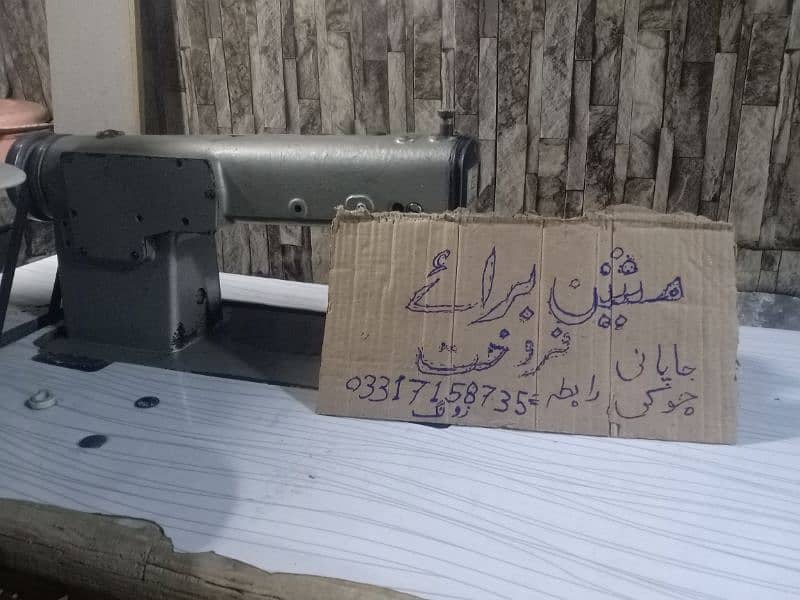 مشین برائے
فروخت
جاپانی
جوکی رابطہ = 03317158735